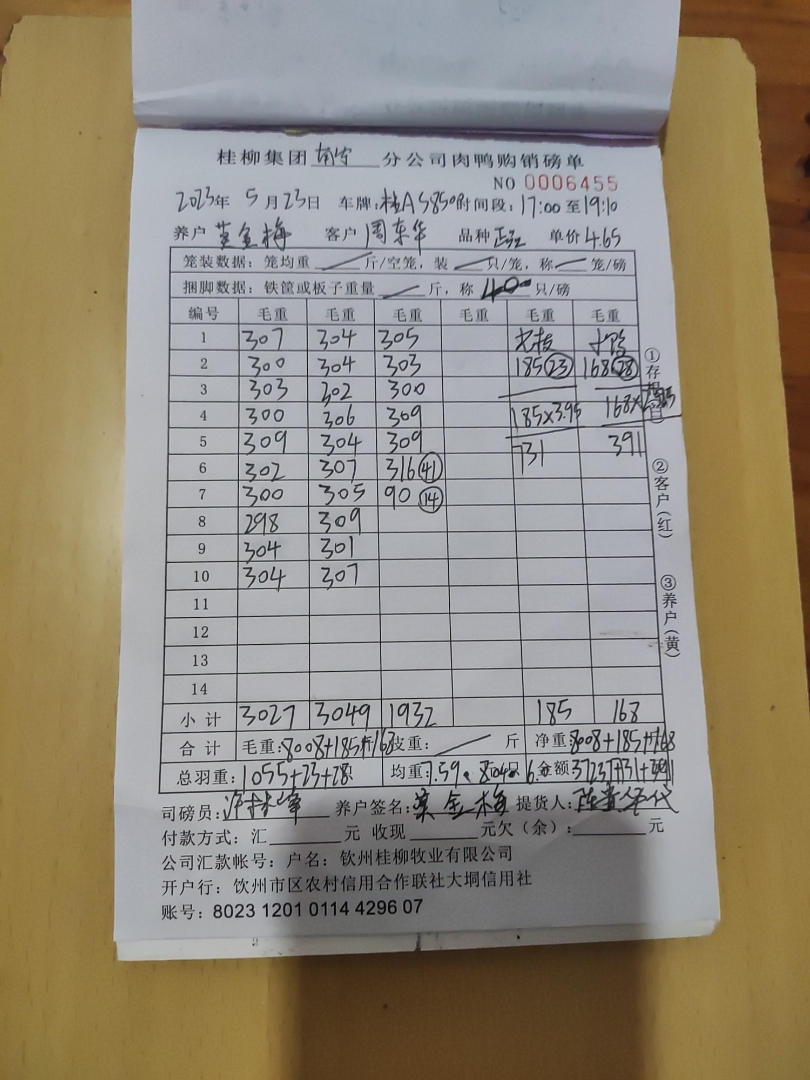 桂柳集团 南宁 分公司肉鸭购销磅单
NO 0006455
2023年 5月23日 车牌:桂A S850 时间段:17:00至19:10
养户 黄金梅 客户 周东华 品种 单价 4.65
笼装数据:笼均重 斤/空笼,装 只/笼,称 笼/磅
捆脚数据:铁筐或板子重量 斤,称 40 只/磅
编号 毛重 毛重 毛重 毛重 毛重 毛重
1 307 304 305
2 300 304 303 185(23) 168(28)
3 303 302 300
4 300 306 309 185×3.95 168×
5 309 304 309 731 391
6 302 307 316(41)
7 300 305 90(14)
8 298 309
9 304 301
10 304 307
11
12
13
14
小计 3027 3049 1932 185 168
合计 毛重:8008+185+168 皮重: 斤 净重:8008+185+168
总羽重:1055+23+28只 均重:7.59、8.04、6.0 金额:37237+731+391
司磅员: 养户签名:黄金梅 提货人:
付款方式:汇 元 收现 元欠(余): 元
公司汇款帐号:户名:钦州桂柳牧业有限公司
开户行:钦州市区农村信用合作联社大垌信用社
账号:8023 1201 0114 4296 07
①存根(白)
②客户(红)
③养户(黄)